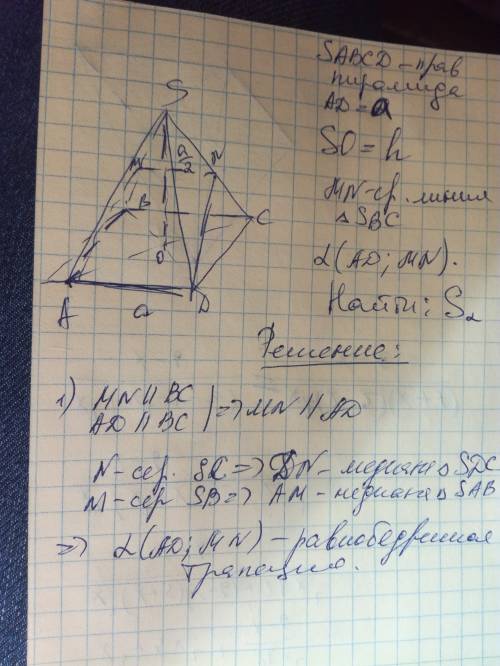 SABCD – прав
пирамида
AD = a
SO = h
MN – ср. линия
△ SBC
α(AD; MN).
Найти: Sα
S
M
a/2
N
B
C
O
A
a
D
Решение:
1) MN || BC
AD || BC | => MN || AD
N – сер. SC => DN – медиана △ SDC
M – сер SB => AM – медиана △ SAB
=> α(AD; MN) – равнобедренная
трапеция.